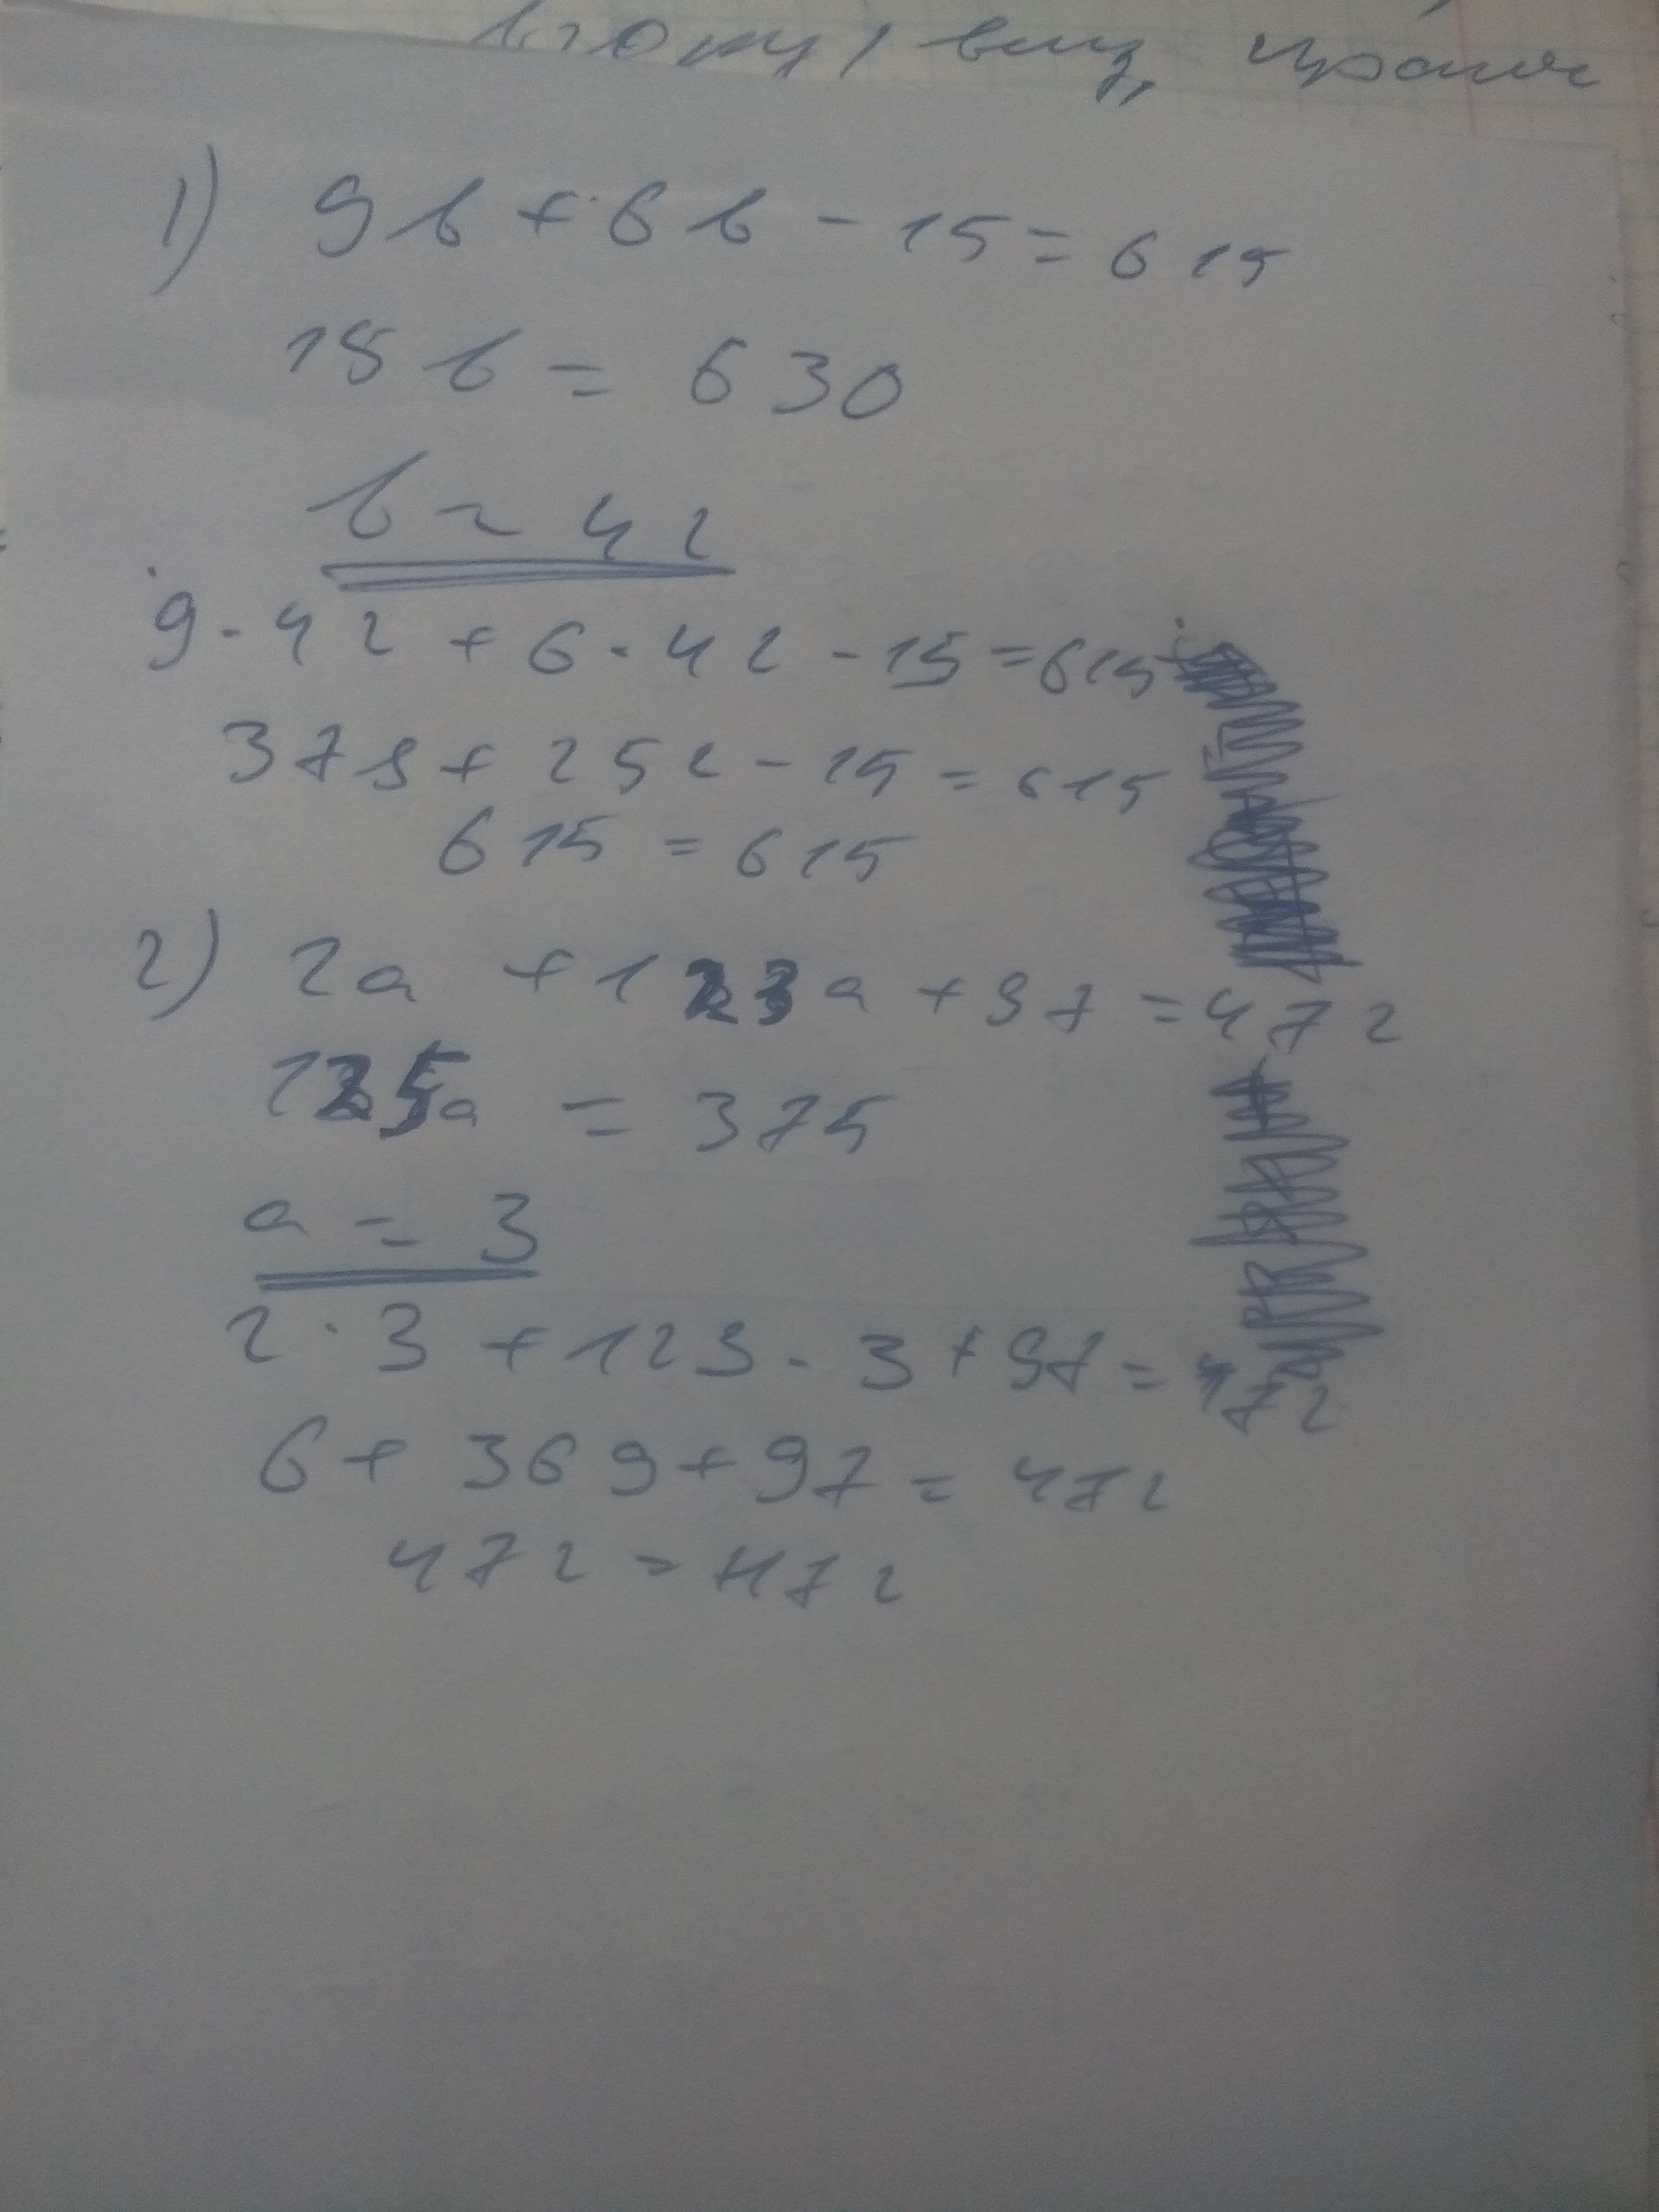 1) 9b + 6b - 15 = 615
15b = 630
b = 42
9 · 42 + 6 · 42 - 15 = 615
378 + 252 - 15 = 615
615 = 615
2) 2a + 123a + 97 = 472
125a = 375
a = 3
2 · 3 + 123 · 3 + 97 = 472
6 + 369 + 97 = 472
472 = 472